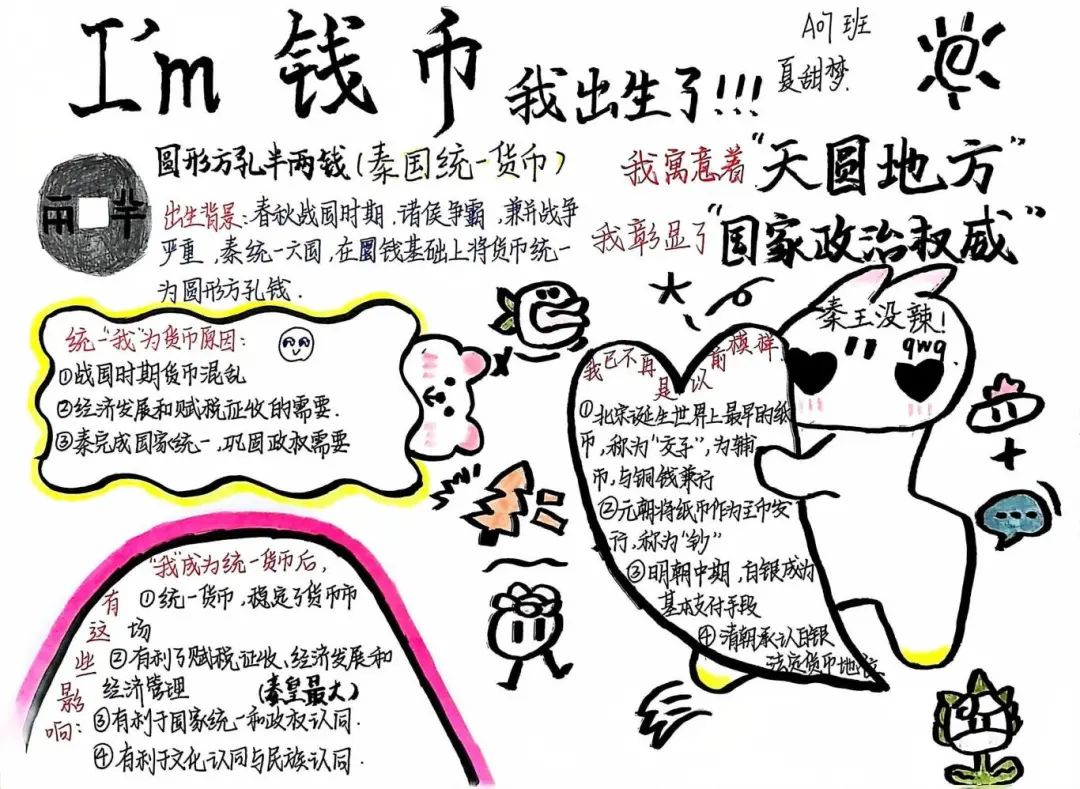 I'm 钱币 我出生了!!!
A07班
夏甜梦
半两
圆形方孔半两钱(秦国统一货币)
出生背景:春秋战国时期,诸侯争霸,兼并战争
严重,秦统一六国,在圜钱基础上将货币统一
为圆形方孔钱.
我寓意着“天圆地方”
我彰显了“国家政治权威”
统一“我”为货币原因:
①战国时期货币混乱
②经济发展和赋税征收的需要.
③秦完成国家统一,巩固政权需要
“我”成为统一货币后,
有这些影响:
①统一货币,稳定了货币市
场
②有利于赋税征收、经济发展和
经济管理
(秦皇最大)
③有利于国家统一和政权认同.
④有利于文化认同与民族认同.
秦王没辣!
qwq
我已不再是以前模样
①北宋诞生世界上最早的纸
币,称为“交子”,为辅
币,与铜钱兼行
②元朝将纸币作为主币发
行,称为“钞”
③明朝中期,白银成为
基本支付手段
④清朝承认白银
法定货币地位